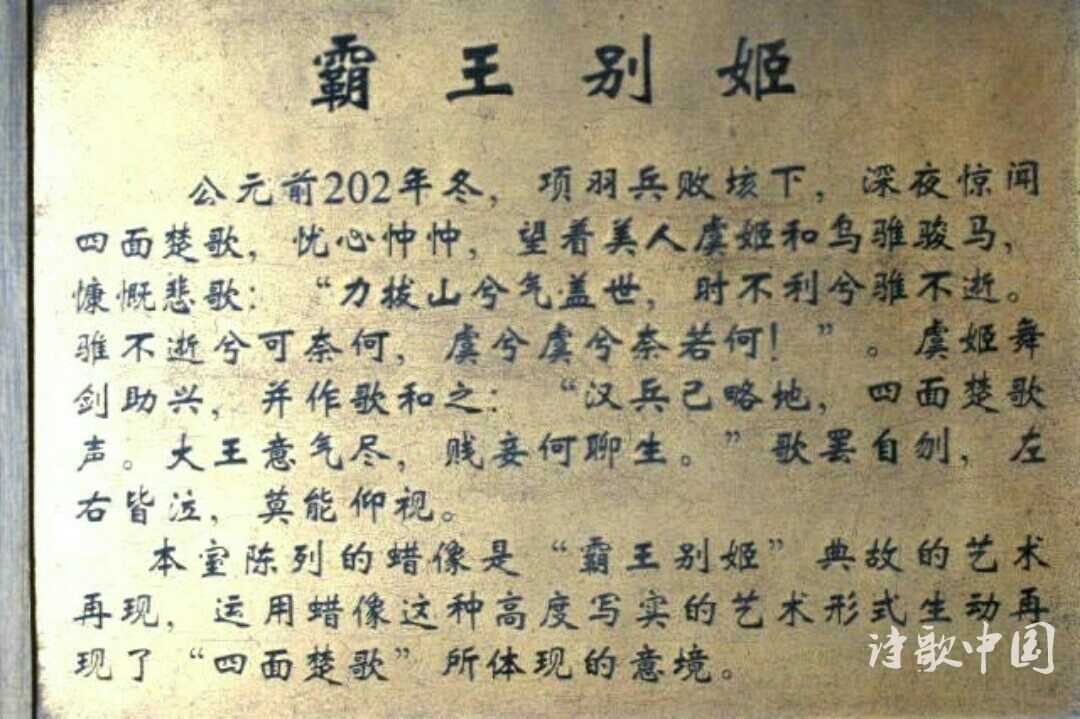 霸王别姬
公元前202年冬，项羽兵败垓下，深夜惊闻
四面楚歌，忧心忡忡，望着美人虞姬和乌骓骏马，
慷慨悲歌：“力拔山兮气盖世，时不利兮骓不逝。
骓不逝兮可奈何，虞兮虞兮奈若何！”。虞姬舞
剑助兴，并作歌和之：“汉兵已略地，四面楚歌
声。大王意气尽，贱妾何聊生。”歌罢自刎，左
右皆泣，莫能仰视。
本室陈列的蜡像是“霸王别姬”典故的艺术
再现，运用蜡像这种高度写实的艺术形式生动再
现了“四面楚歌”所体现的意境。
诗歌中国